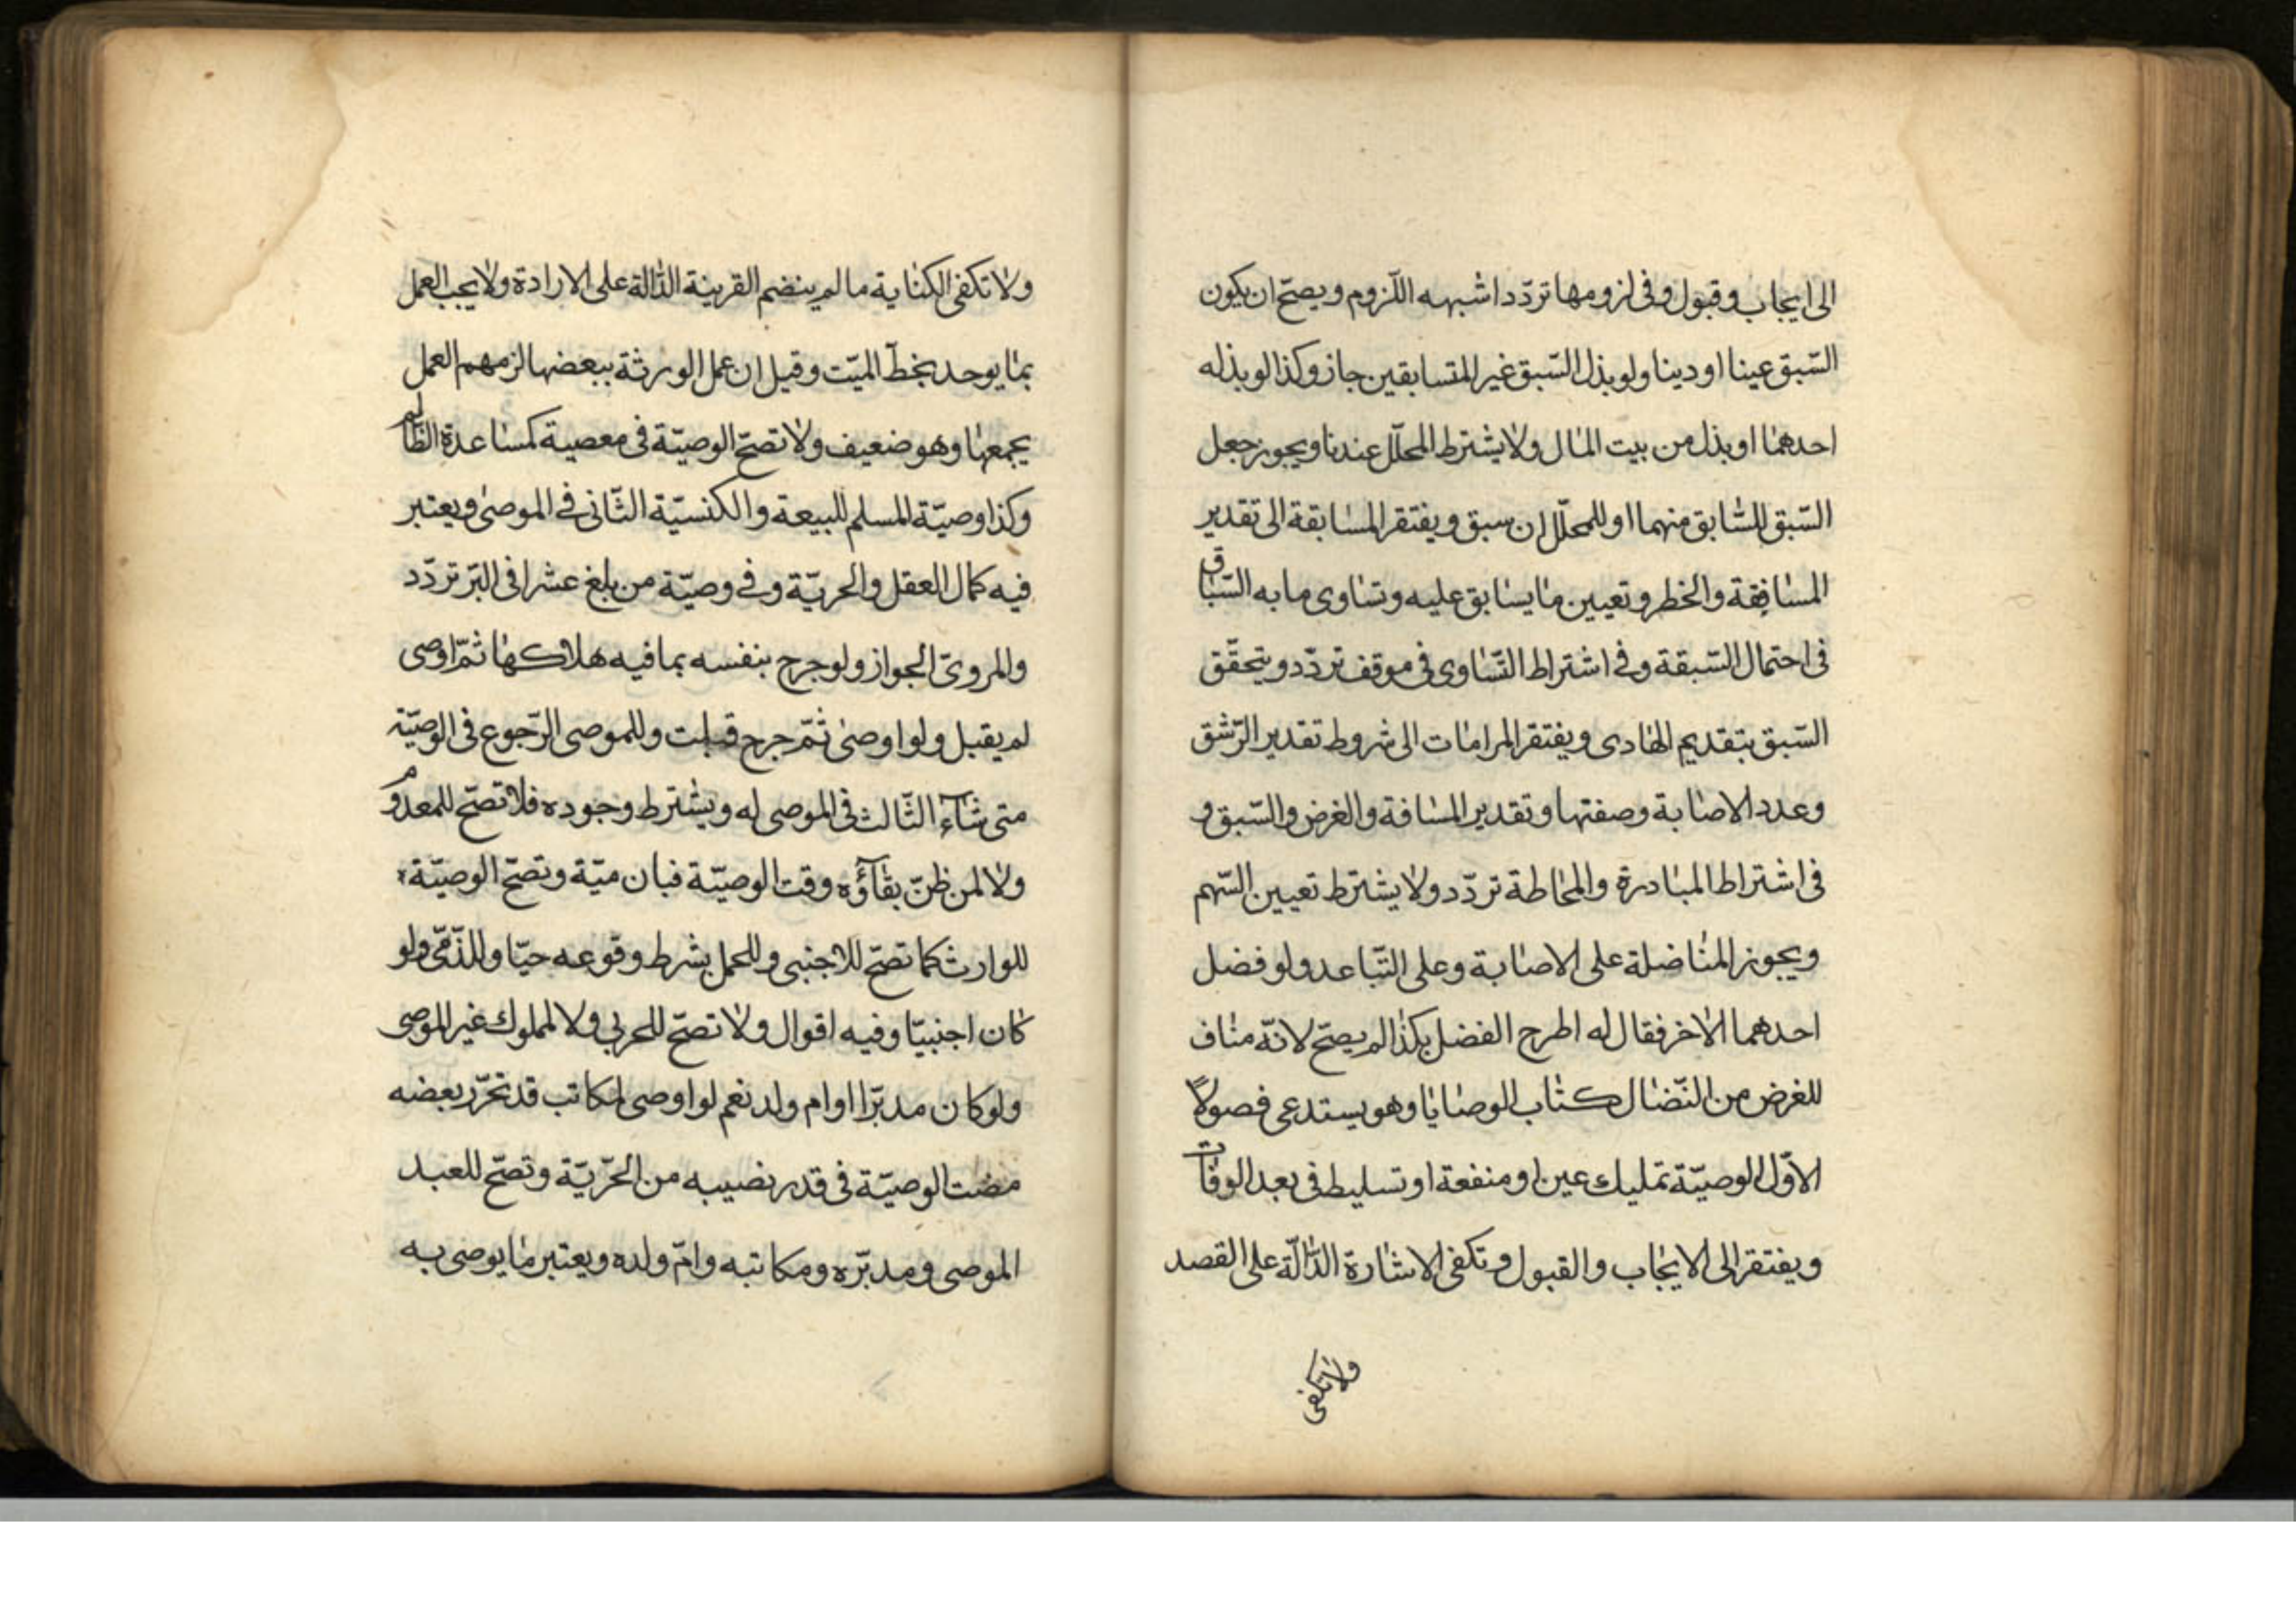 الى ايجاب و قبول و فى لزومها تردّد اشبهه اللّزوم و يصحّ ان يكون
السّبق عينا او دينا ولو بذل السّبق غير المتسابقين جاز وكذا لو بذله
احدهما او بذل من بيت المال ولا يشترط المحلّل عندنا ويجوز جعل
السّبق للسّابق منهما او للمحلّل ان سبق و يفتقر المسابقة الى تقدير
المسافة والخطر و تعيين ما يسابق عليه وتساوى ما به السّباق
فى احتمال السّبقة وفى اشتراط التّساوى فى موقف تردّد و يتحقّق
السّبق بتقديم الهادى و يفتقر المرامات الى شروط تقدير الرّشق
وعدد الاصابة وصفتها وتقدير المسافة والغرض والسّبق و
فى اشتراط المبادرة والمحاطة تردّد ولا يشترط تعيين السّهم
ويجوز المناضلة على الاصابة وعلى التّباعد ولو فضل
احدهما الاخر فقال له اطرح الفضل بكذا لم يصحّ لانّه مناف
للغرض من النّضال كتاب الوصايا وهو يستدعى فصولاً
الاوّل الوصيّة تمليك عين او منفعة او تسليط فى بعد الوفات
ويفتقر الى الايجاب والقبول و تكفى الاشارة الدّالّة على القصد
ولا تكفى
ولا تكفى الكناية ما لم ينضم القرينة الدّالة على الارادة ولا يجب العمل
بما يوحد بخطّ الميّت وقيل ان عمل الورثة ببعضها لزمهم العمل
بجمعها وهو ضعيف ولا تصحّ الوصيّة فى معصية كمساعدة الظّالم
وكذا وصيّة المسلم للبيعة والكنسيّة الثّانى فى الموصى ويعتبر
فيه كمال العقل والحريّة وفى وصيّة من بلغ عشرا فى البرّ تردّد
والمروىّ الجواز ولو جرح بنفسه بما فيه هلاكها ثمّ اوصى
لم يقبل ولو اوصى ثمّ جرح قبلت وللموصى الرّجوع فى الوصيّة
متى شآء الثّالث فى الموصى له ويشترط وجوده فلا تصحّ للمعدوم
ولا لمن ظنّ بقآؤه وقت الوصيّة فبان ميّة وتصحّ الوصيّة
للوارث كما تصحّ للاجنبى وللحمل بشرط وقوعه حيّا وللذّمّى ولو
كان اجنبيّا وفيه اقوال ولا تصحّ للحربى ولا لمملوك غير الموصى
ولو كان مدبّرا او ام ولد نعم لو اوصى لمكاتب قد تحرّر بعضه
مضت الوصيّة فى قدر نصيبه من الحّريّة وتصحّ للعبد
الموصى و مدبّره ومكاتبه وامّ ولده ويعتبر ما يوصى به